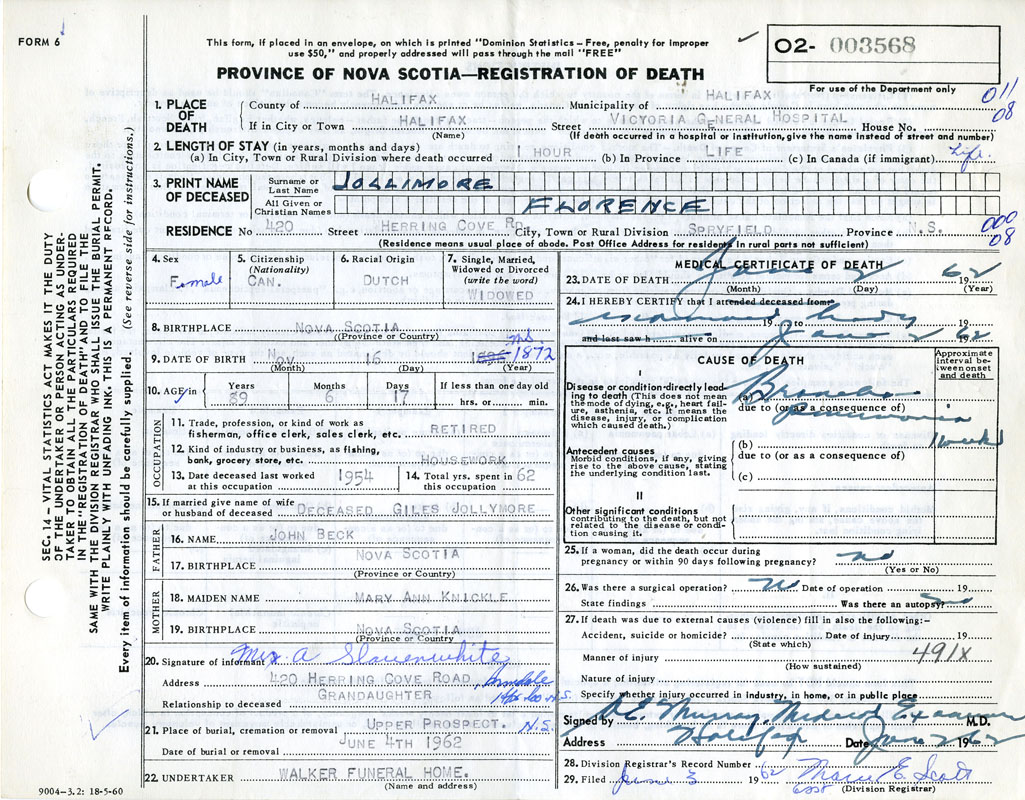 FORM 6
This form, if placed in an envelope, on which is printed "Dominion Statistics – Free, penalty for improper
use $50," and properly addressed will pass through the mail "FREE"
PROVINCE OF NOVA SCOTIA—REGISTRATION OF DEATH
O2- 003568
For use of the Department only
011
08
1. PLACE OF DEATH
County of HALIFAX Municipality of HALIFAX
If in City or Town HALIFAX Street VICTORIA GENERAL HOSPITAL House No.
(Name) (If death occurred in a hospital or institution, give the name instead of street and number)
2. LENGTH OF STAY (in years, months and days)
(a) In City, Town or Rural Division where death occurred 1 HOUR (b) In Province LIFE (c) In Canada (if immigrant) Life.
3. PRINT NAME OF DECEASED
Surname or Last Name JOLLIMORE
All Given or Christian Names FLORENCE
RESIDENCE No 420 Street HERRING COVE RD. City, Town or Rural Division SPRYFIELD Province N.S.
(Residence means usual place of abode. Post Office Address for residents in rural parts not sufficient)
000
08
4. Sex Female
5. Citizenship (Nationality) CAN.
6. Racial Origin DUTCH
7. Single, Married, Widowed or Divorced (write the word) WIDOWED
8. BIRTHPLACE NOVA SCOTIA
(Province or Country)
9. DATE OF BIRTH NOV. 16 1872
(Month) (Day) (Year)
10. AGE in Years 89 Months 6 Days 17 If less than one day old
hrs. or min.
OCCUPATION
11. Trade, profession, or kind of work as
fisherman, office clerk, sales clerk, etc. RETIRED
12. Kind of industry or business, as fishing,
bank, grocery store, etc. HOUSEWORK
13. Date deceased last worked
at this occupation 1954
14. Total yrs. spent in
this occupation 62
15. If married give name of wife
or husband of deceased DECEASED GILES JOLLYMORE
FATHER
16. NAME JOHN BECK
17. BIRTHPLACE NOVA SCOTIA
(Province or Country)
MOTHER
18. MAIDEN NAME MARY ANN KNICKLE
19. BIRTHPLACE NOVA SCOTIA
(Province or Country)
20. Signature of informant Mrs. A Slauenwhite
Address 420 HERRING COVE ROAD, Armdale
Relationship to deceased GRANDAUGHTER Hfx. Co. N.S.
21. Place of burial, cremation or removal UPPER PROSPECT. N.S.
Date of burial or removal JUNE 4TH 1962
22. UNDERTAKER WALKER FUNERAL HOME.
(Name and address)
9004–3.2: 18-5-60
MEDICAL CERTIFICATE OF DEATH
23. DATE OF DEATH June 2 62
(Month) (Day) (Year)
24. I HEREBY CERTIFY that I attended deceased from
examined body 19 to June 2 1962
and last saw h alive on 19
CAUSE OF DEATH
Approximate interval between onset and death
I
Disease or condition directly leading to death (This does not mean
the mode of dying, e.g., heart failure, asthenia, etc. It means the
disease, injury, or complication
which caused death.)
(a) Broncho-pneumonia
due to (or as a consequence of)
1 week
Antecedent causes
Morbid conditions, if any, giving
rise to the above cause, stating
the underlying condition last.
(b)
due to (or as a consequence of)
(c)
II
Other significant conditions
contributing to the death, but not
related to the disease or condition causing it.
25. If a woman, did the death occur during
pregnancy or within 90 days following pregnancy? no
(Yes or No)
26. Was there a surgical operation? No Date of operation 19
State findings Was there an autopsy? no
27. If death was due to external causes (violence) fill in also the following:-
Accident, suicide or homicide? Date of injury 19
(State which)
Manner of injury 491X
(How sustained)
Nature of injury
Specify whether injury occurred in industry, in home, or in public place
Signed by D.E. Murray, Medical Examiner M.D.
Address Halifax Date June 2 1962
28. Division Registrar's Record Number
29. Filed June 3 1962 Marie E. Scott
(Division Registrar)
SEC. 14 – VITAL STATISTICS ACT MAKES IT THE DUTY
OF THE UNDERTAKER OR PERSON ACTING AS UNDER-
TAKER TO OBTAIN ALL THE PARTICULARS REQUIRED
IN THE "REGISTRATION OF DEATH" AND TO FILE THE
SAME WITH THE DIVISION REGISTRAR WHO SHALL ISSUE THE BURIAL PERMIT.
WRITE PLAINLY WITH UNFADING INK. THIS IS A PERMANENT RECORD.
Every item of information should be carefully supplied. (See reverse side for instructions.)